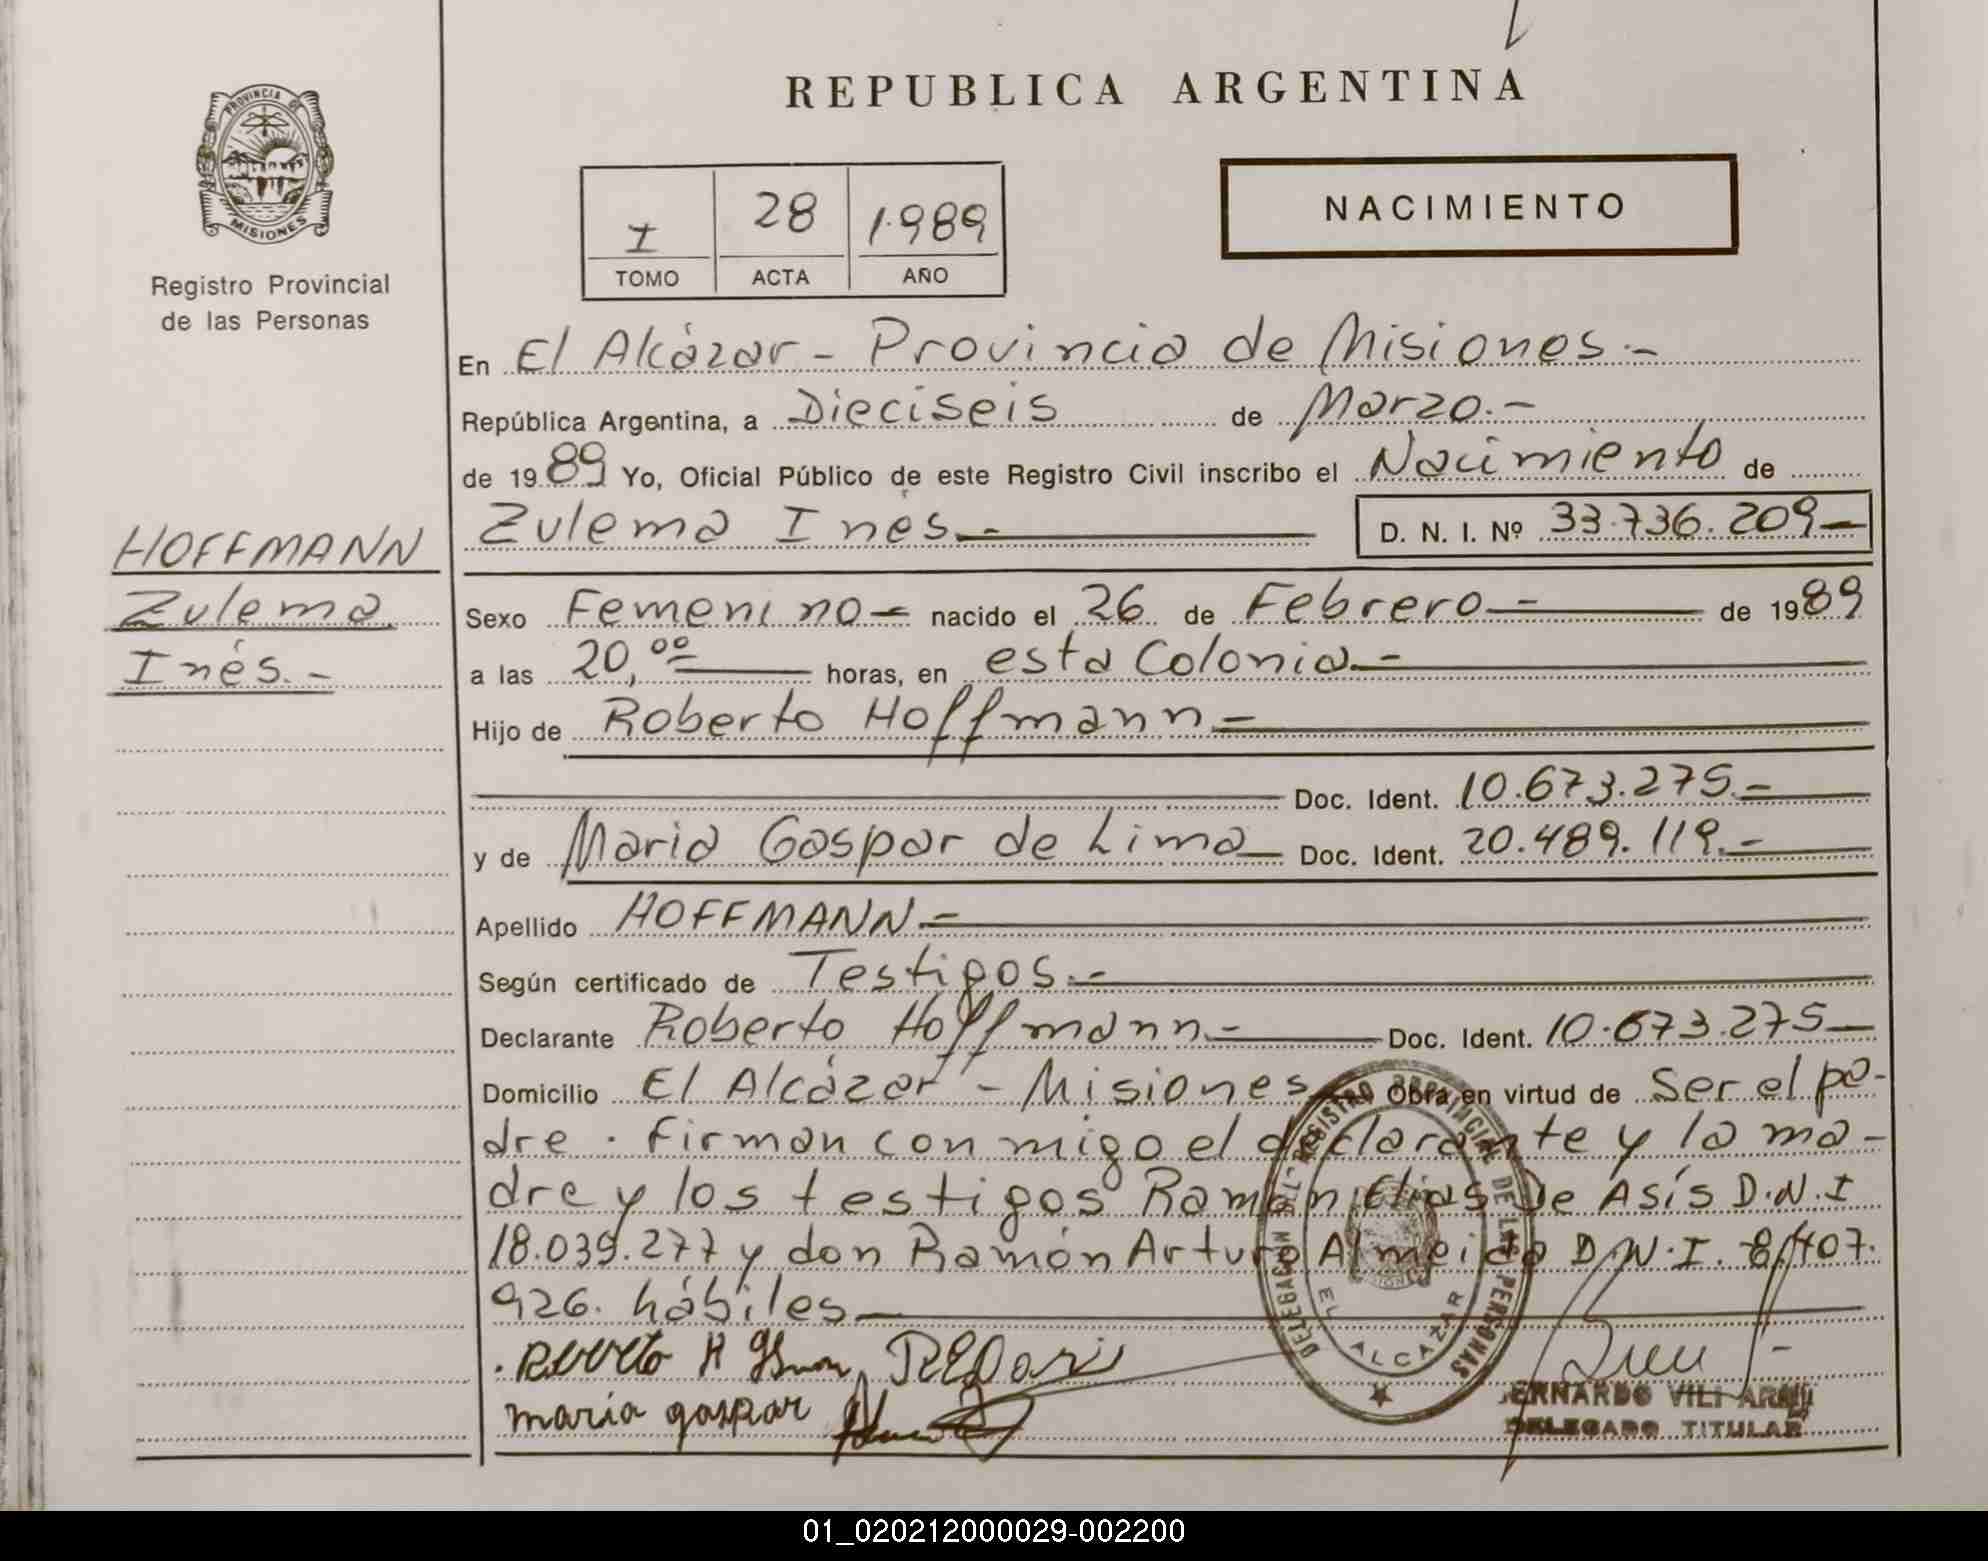 REPUBLICA ARGENTINA
PROVINCIA DE
MISIONES
Registro Provincial
de las Personas
I 28 1.989
TOMO ACTA AÑO
NACIMIENTO
En El Alcázar - Provincia de Misiones.-
República Argentina, a Dieciseis de Marzo.-
de 1989 Yo, Oficial Público de este Registro Civil inscribo el Nacimiento de
Zulema Ines.- D. N. I. Nº 33.736.209-
HOFFMANN
Zulema
Inés.-
Sexo Femenino- nacido el 26 de Febrero- de 1989
a las 20,00 horas, en esta Colonia.-
Hijo de Roberto Hoffmann-
Doc. Ident. 10.673.275.-
y de Maria Gaspar de Lima Doc. Ident. 20.489.119.-
Apellido HOFFMANN.-
Según certificado de Testigos.-
Declarante Roberto Hoffmann.- Doc. Ident. 10.673.275-
Domicilio El Alcázar - Misiones Obra en virtud de Ser el pa-
dre. Firman con migo el declarante y la ma-
dre y los testigos Ramón Elias De Asís D.N.I
18.039.277 y don Ramón Arturo Almeida D.N.I. 8.407.
926. hábiles
maria gaspar
DELEGACION DEL REGISTRO PROVINCIAL DE LAS PERSONAS
MISIONES
EL ALCAZAR
DELEGADO TITULAR
01_020212000029-002200